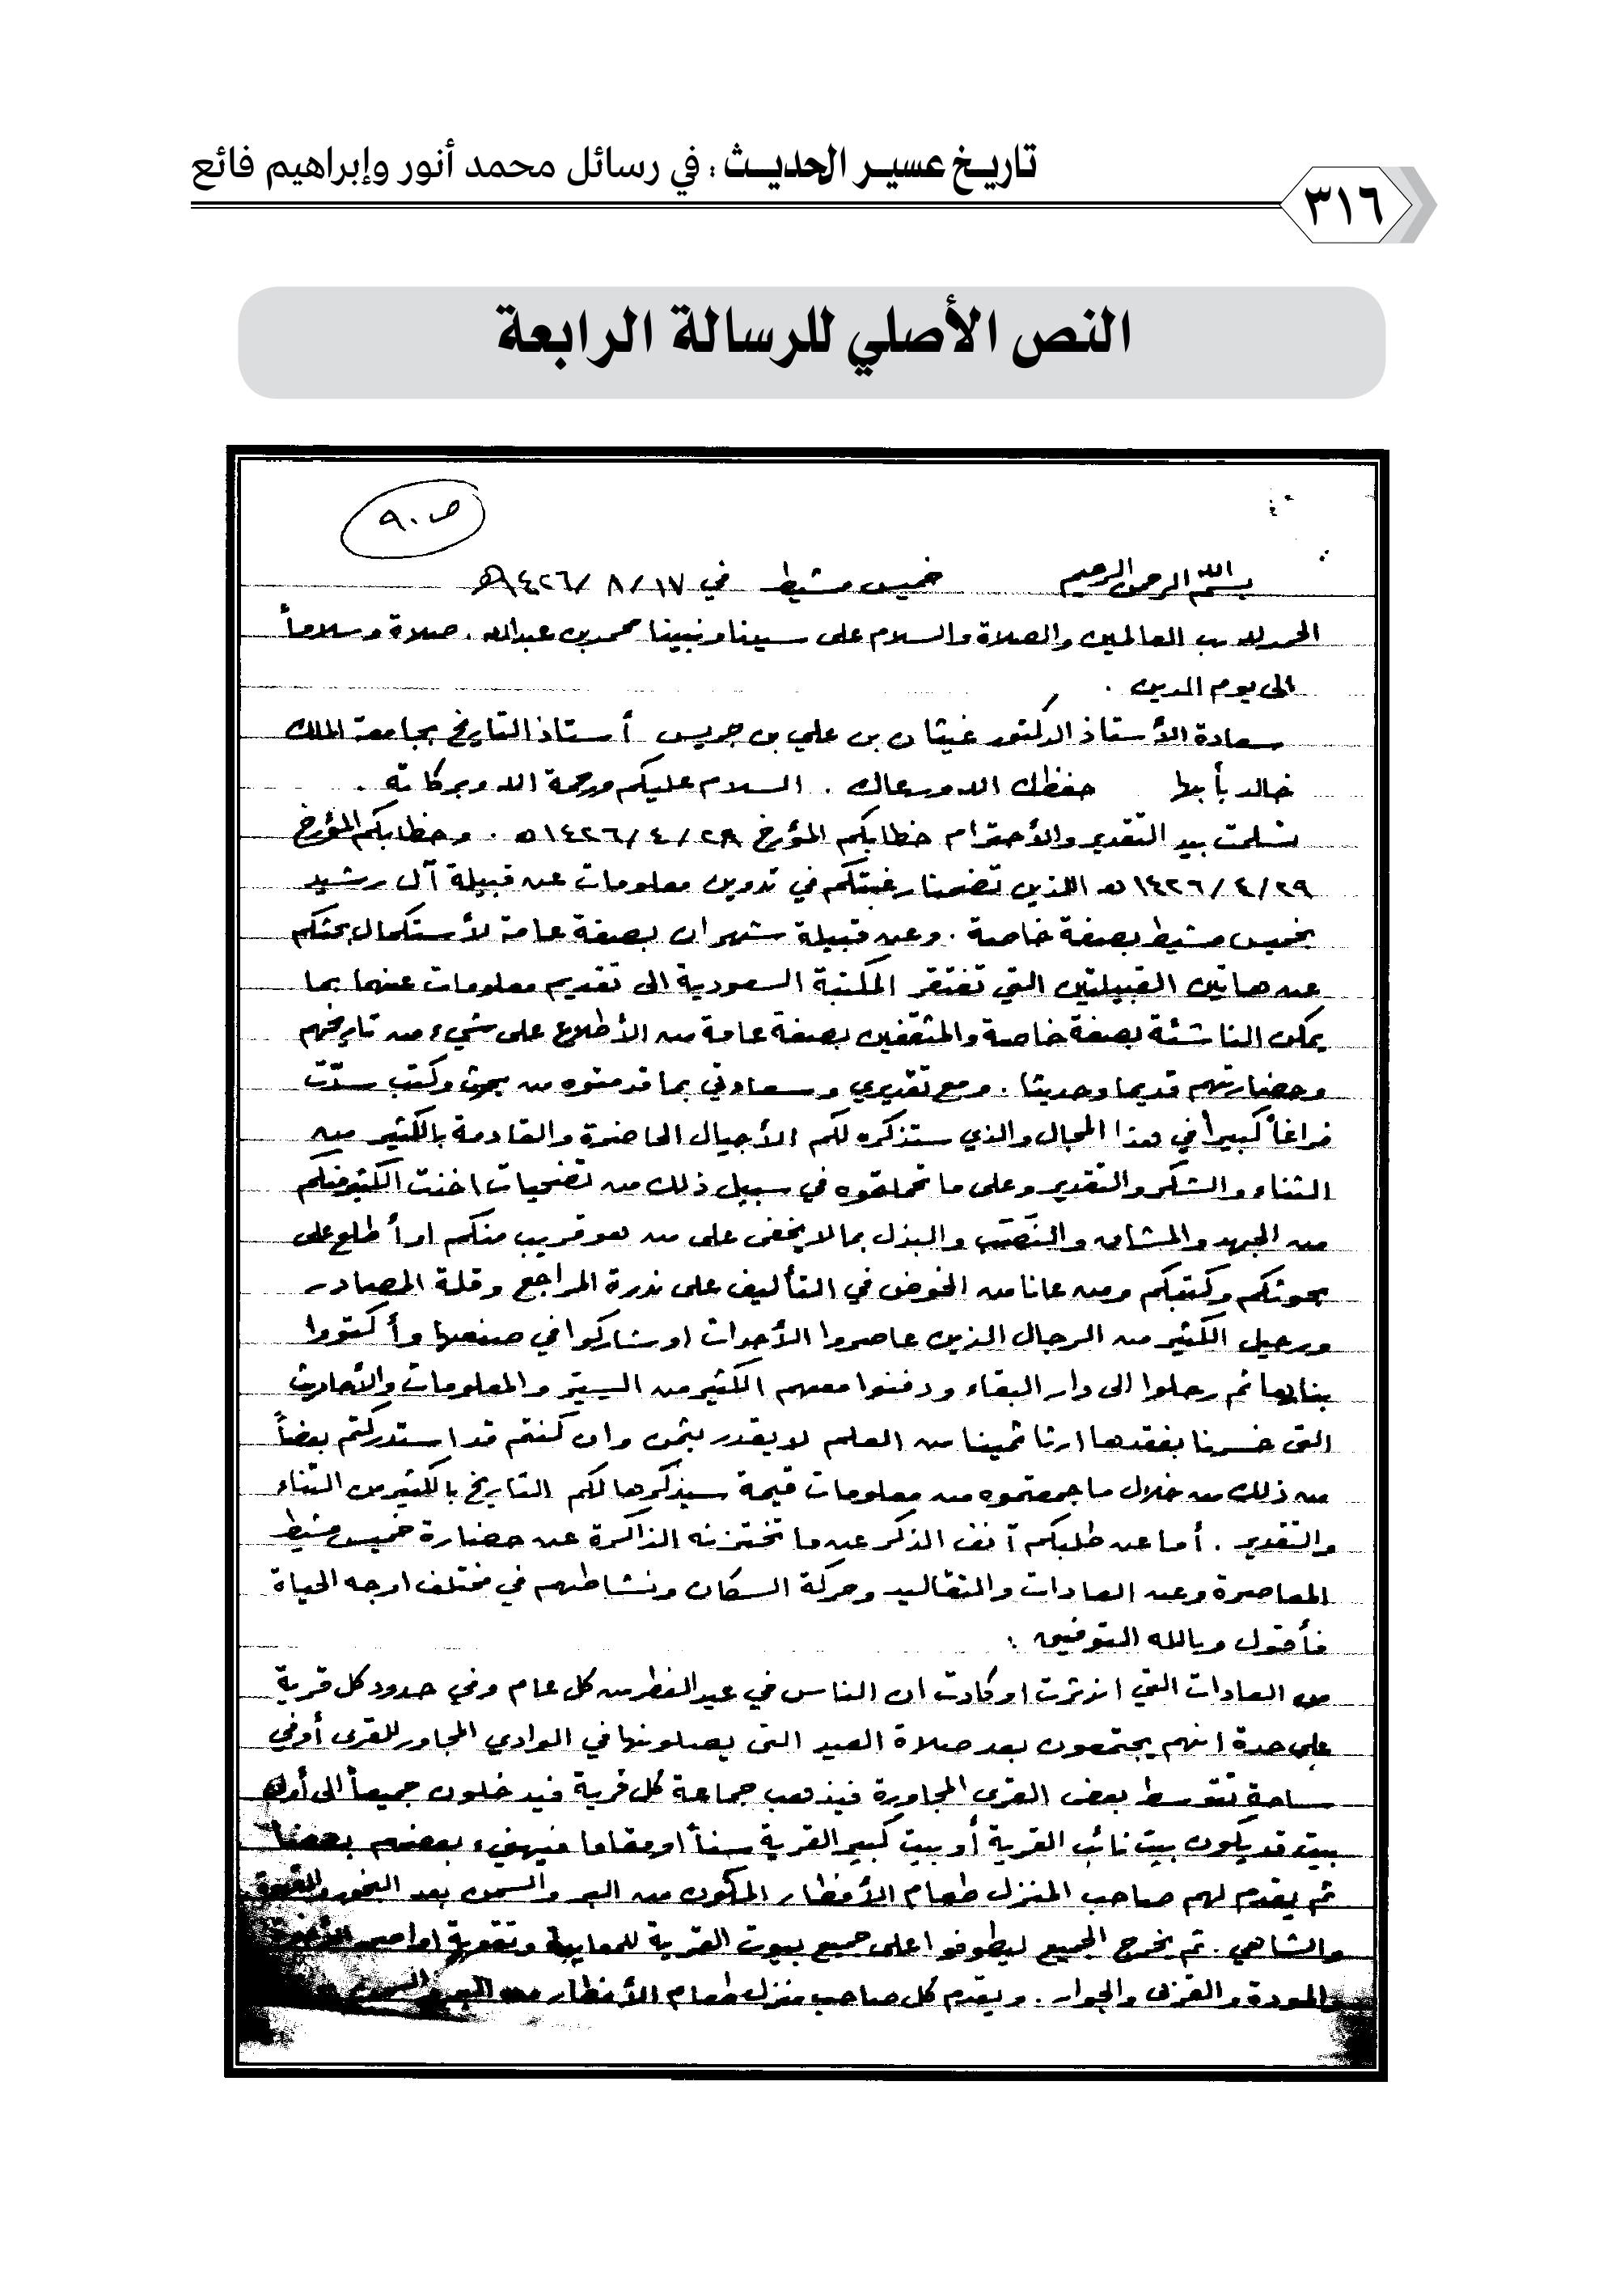 تاريخ عسير الحديث : في رسائل محمد أنور وإبراهيم فائع
٣١٦
النص الأصلي للرسالة الرابعة
ص ٩٠
بسم الله الرحمن الرحيم خميس مشيط في ١٧/ ٨ /١٤٢٦هـ
الحمد لله رب العالمين والصلاة والسلام على سيدنا ونبينا محمد بن عبدالله . صلاة وسلاماً
الى يوم الدين .
سعادة الأستاذ الدكتور غيثان بن علي بن جريس أستاذ التاريخ بجامعة الملك
خالد بأبها حفظك الله ورعاك . السلام عليكم ورحمة الله وبركاته .
تسلمت بيد التقدير والأحترام خطابكم المؤرخ ٢٨ /٤ /١٤٢٦هـ . وخطابكم المؤرخ
٢٩ /٤ /١٤٢٦هـ اللذين تضمنا رغبتكم في تدوين معلومات عن قبيلة آل رشيد
بخميس مشيط بصفة خاصة . وعن قبيلة شهران بصفة عامة لأستكمال بحثكم
عن هاتين القبيلتين التي تفتقر المكتبة السعودية الى تقديم معلومات عنهما بما
يمكن الناشئة بصفة خاصة والمثقفين بصفة عامة من الأطلاع على شيء من تاريخهم
وحضارتهم قديما وحديثا . ومع تقديري وسعادتي بما قدمتوه من بحوث وكتب سدّت
فراغاً كبيراً في هذا المجال والذي ستذكره لكم الأجيال الحاضرة والقادمة بالكثير من
الثناء والشكر والتقدير وعلى ما تحملتوه في سبيل ذلك من تضحيات اخذت الكثير منكم
من الجهد والمشاق والنَصَب والبذل بما لا يخفى على من هو قريب منكم او أطلع على
بحوثكم وكتبكم ومن عانا من الخوض في التأليف على ندرة المراجع وقلة المصادر
ورحيل الكثير من الرجال الذين عاصروا الأحداث او شاركوا في صنعها وأكتووا
بنارها ثم رحلوا الى دار البقاء ودفنوا معهم الكثير من السير والمعلومات والأحاديث
التي خسرنا بفقدها ارثا ثمينا من العلم لا يقدر بثمن وان كنتم قد استدركتم بعضاً
من ذلك من خلال ما جمعتموه من معلومات قيمة سيذكرها لكم التاريخ بالكثير من الثناء
والتقدير . أما عن طلبكم آنف الذكر عن ما تختزنه الذاكرة عن حضارة خميس مشيط
المعاصرة وعن العادات والتقاليد وحركة السكان ونشاطهم في مختلف اوجه الحياة
فأقول وبالله التوفيق :
من العادات التي اندثرت او كادت ان الناس في عيد الفطر من كل عام وفي حدود كل قرية
على حدة انهم يجتمعون بعد صلاة العيد التي يصلونها في الوادي المجاور للقرى أو في
ساحة تتوسط بعض القرى المجاورة فيذهب جماعة كل قرية فيدخلون جميعاً الى أول
بيت قد يكون بيت نائب القرية أو بيت كبير القرية سناً او مقاما فيهنيء بعضهم بعضا
ثم يقدم لهم صاحب المنزل طعام الأفطار المكون من البر والسمن بعد البخور والقهوة
والشاهي . ثم يخرج الجميع ليطوفوا على جميع بيوت القرية للمعايدة وتقوية اواصر الأخوة
والمودة والقربى والجوار . ويقدم كل صاحب منزل طعام الأفطار من البر والسمن